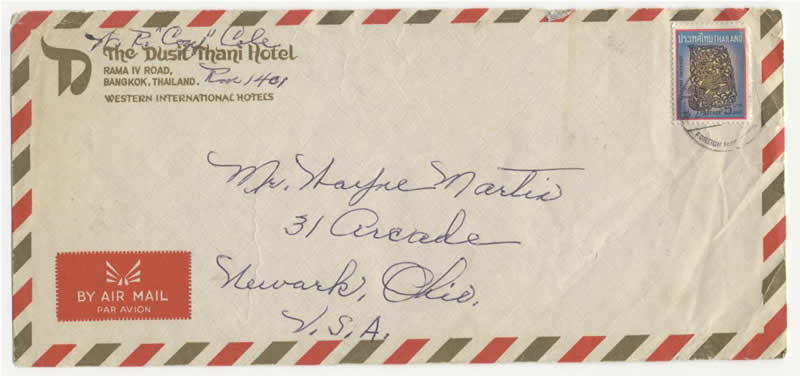 W. R. "Cozy" Cole
The Dusit Thani Hotel
RAMA IV ROAD,
BANGKOK, THAILAND. Rm 1401
WESTERN INTERNATIONAL HOTELS
ประเทศไทย THAILAND
FOREIGN
Mr. Wayne Martin
31 Arcade
Newark, Ohio.
U.S.A.
BY AIR MAIL
PAR AVION